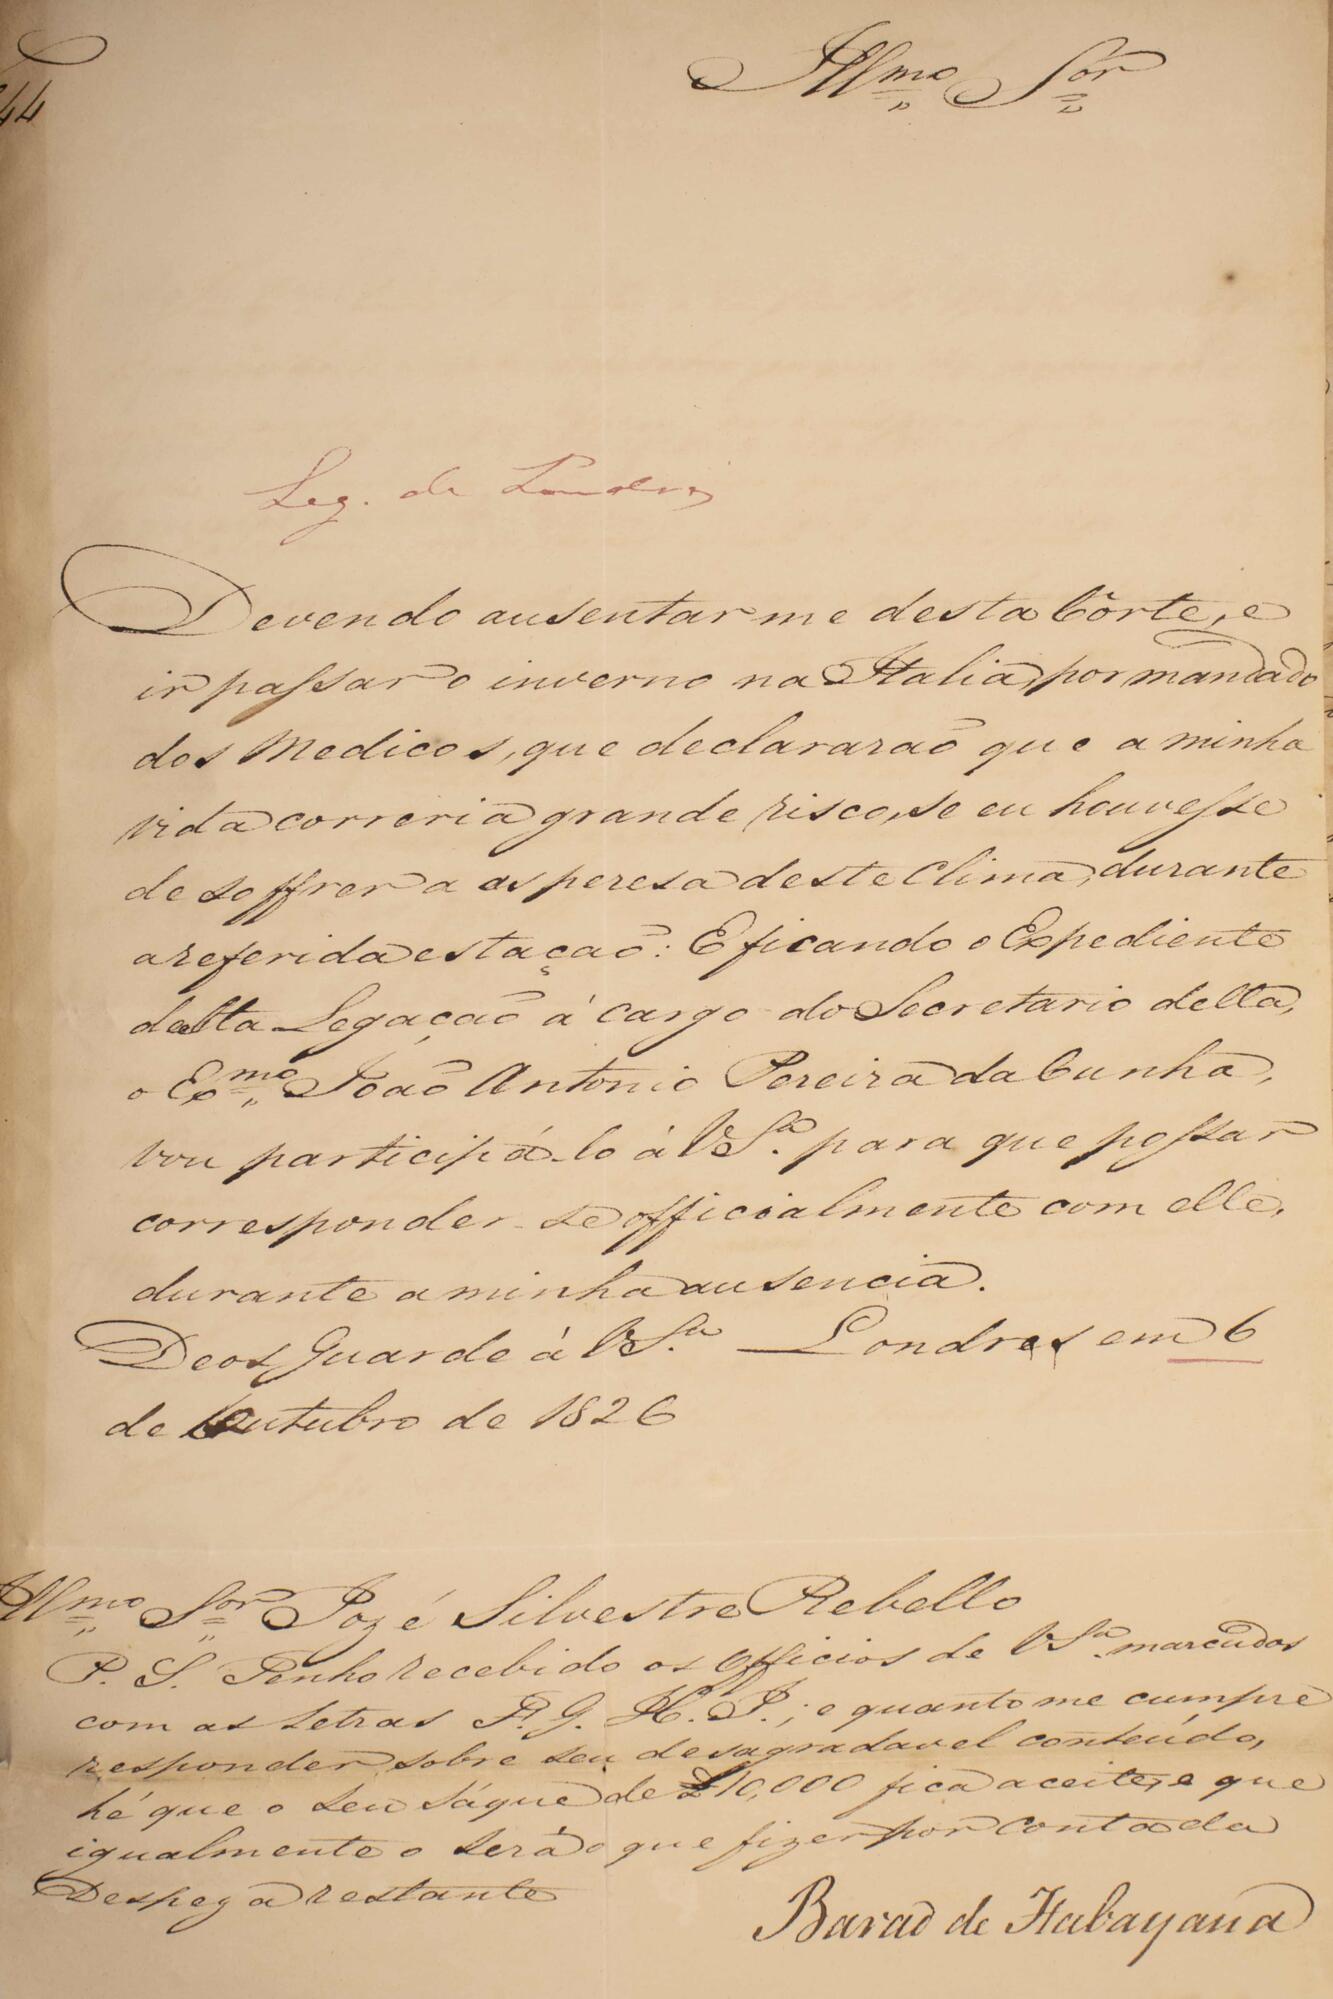 44
Illmo Sor
Leg. de Londres
Devendo ausentar me desta Côrte, e
ir passar o inverno na Italia, por mandado
dos Medicos, que declararaõ que a minha
vida correria grande risco, se eu houvesse
de soffrer a asperesa deste Clima, durante
a referida estaçaõ: E ficando o Expediente
desta Legaçaõ á cargo do Secretario della,
o Exmo Joaõ Antonio Pereira da Cunha,
vou participá-lo á VSa. para que possar
corresponder-se officialmente com elle,
durante a minha ausencia.
Deos Guarde á VSa Londres em 6
de Outubro de 1826
Illmo Sor Jozé Silvestre Rebello
P. S. Tenho recebido os Officios de VSa. marcados
com as Letras F. G. H. I.; e quanto me cumpre
responder sobre seu desagradavel conteúdo,
hé que o seu sáque de £10,000 fica aceite, e que
igualmente o será o que fizer por conta da
Despeza restante
Barao de Itabayana